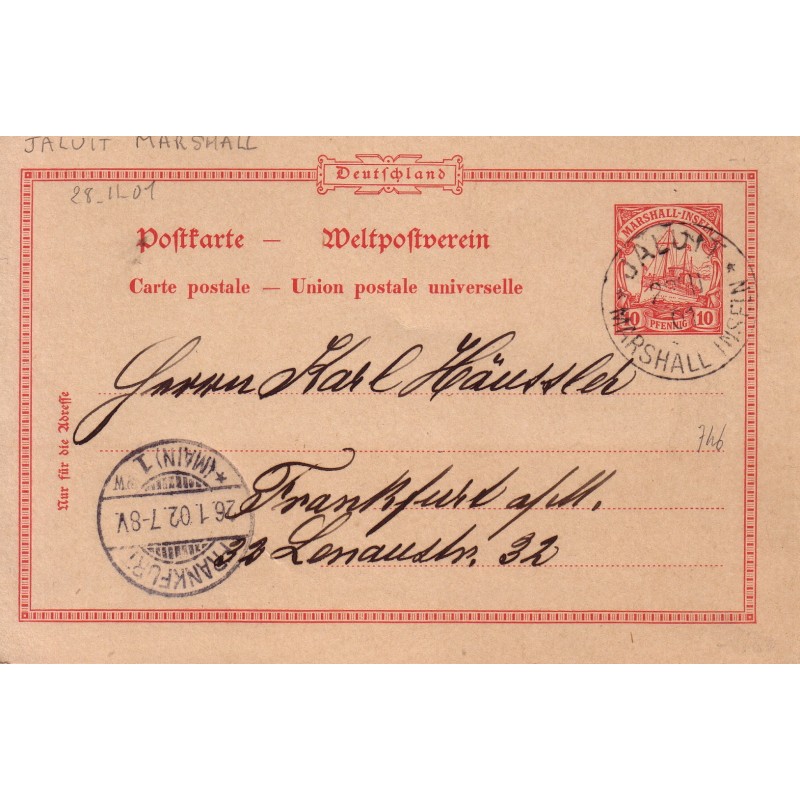 JALUIT MARSHALL
28-11-01
Deutschland
Postkarte — Weltpostverein
Carte postale — Union postale universelle
MARSHALL-INSELN
10 PFENNIG 10
JALUIT
01
* MARSHALL INSELN *
Nur für die Adresse
Herrn Karl Häussler
Frankfurt a/M.
32 Lenaustr. 32
FRANKFURT
26.1.02.7-8V.
* (MAIN) 1